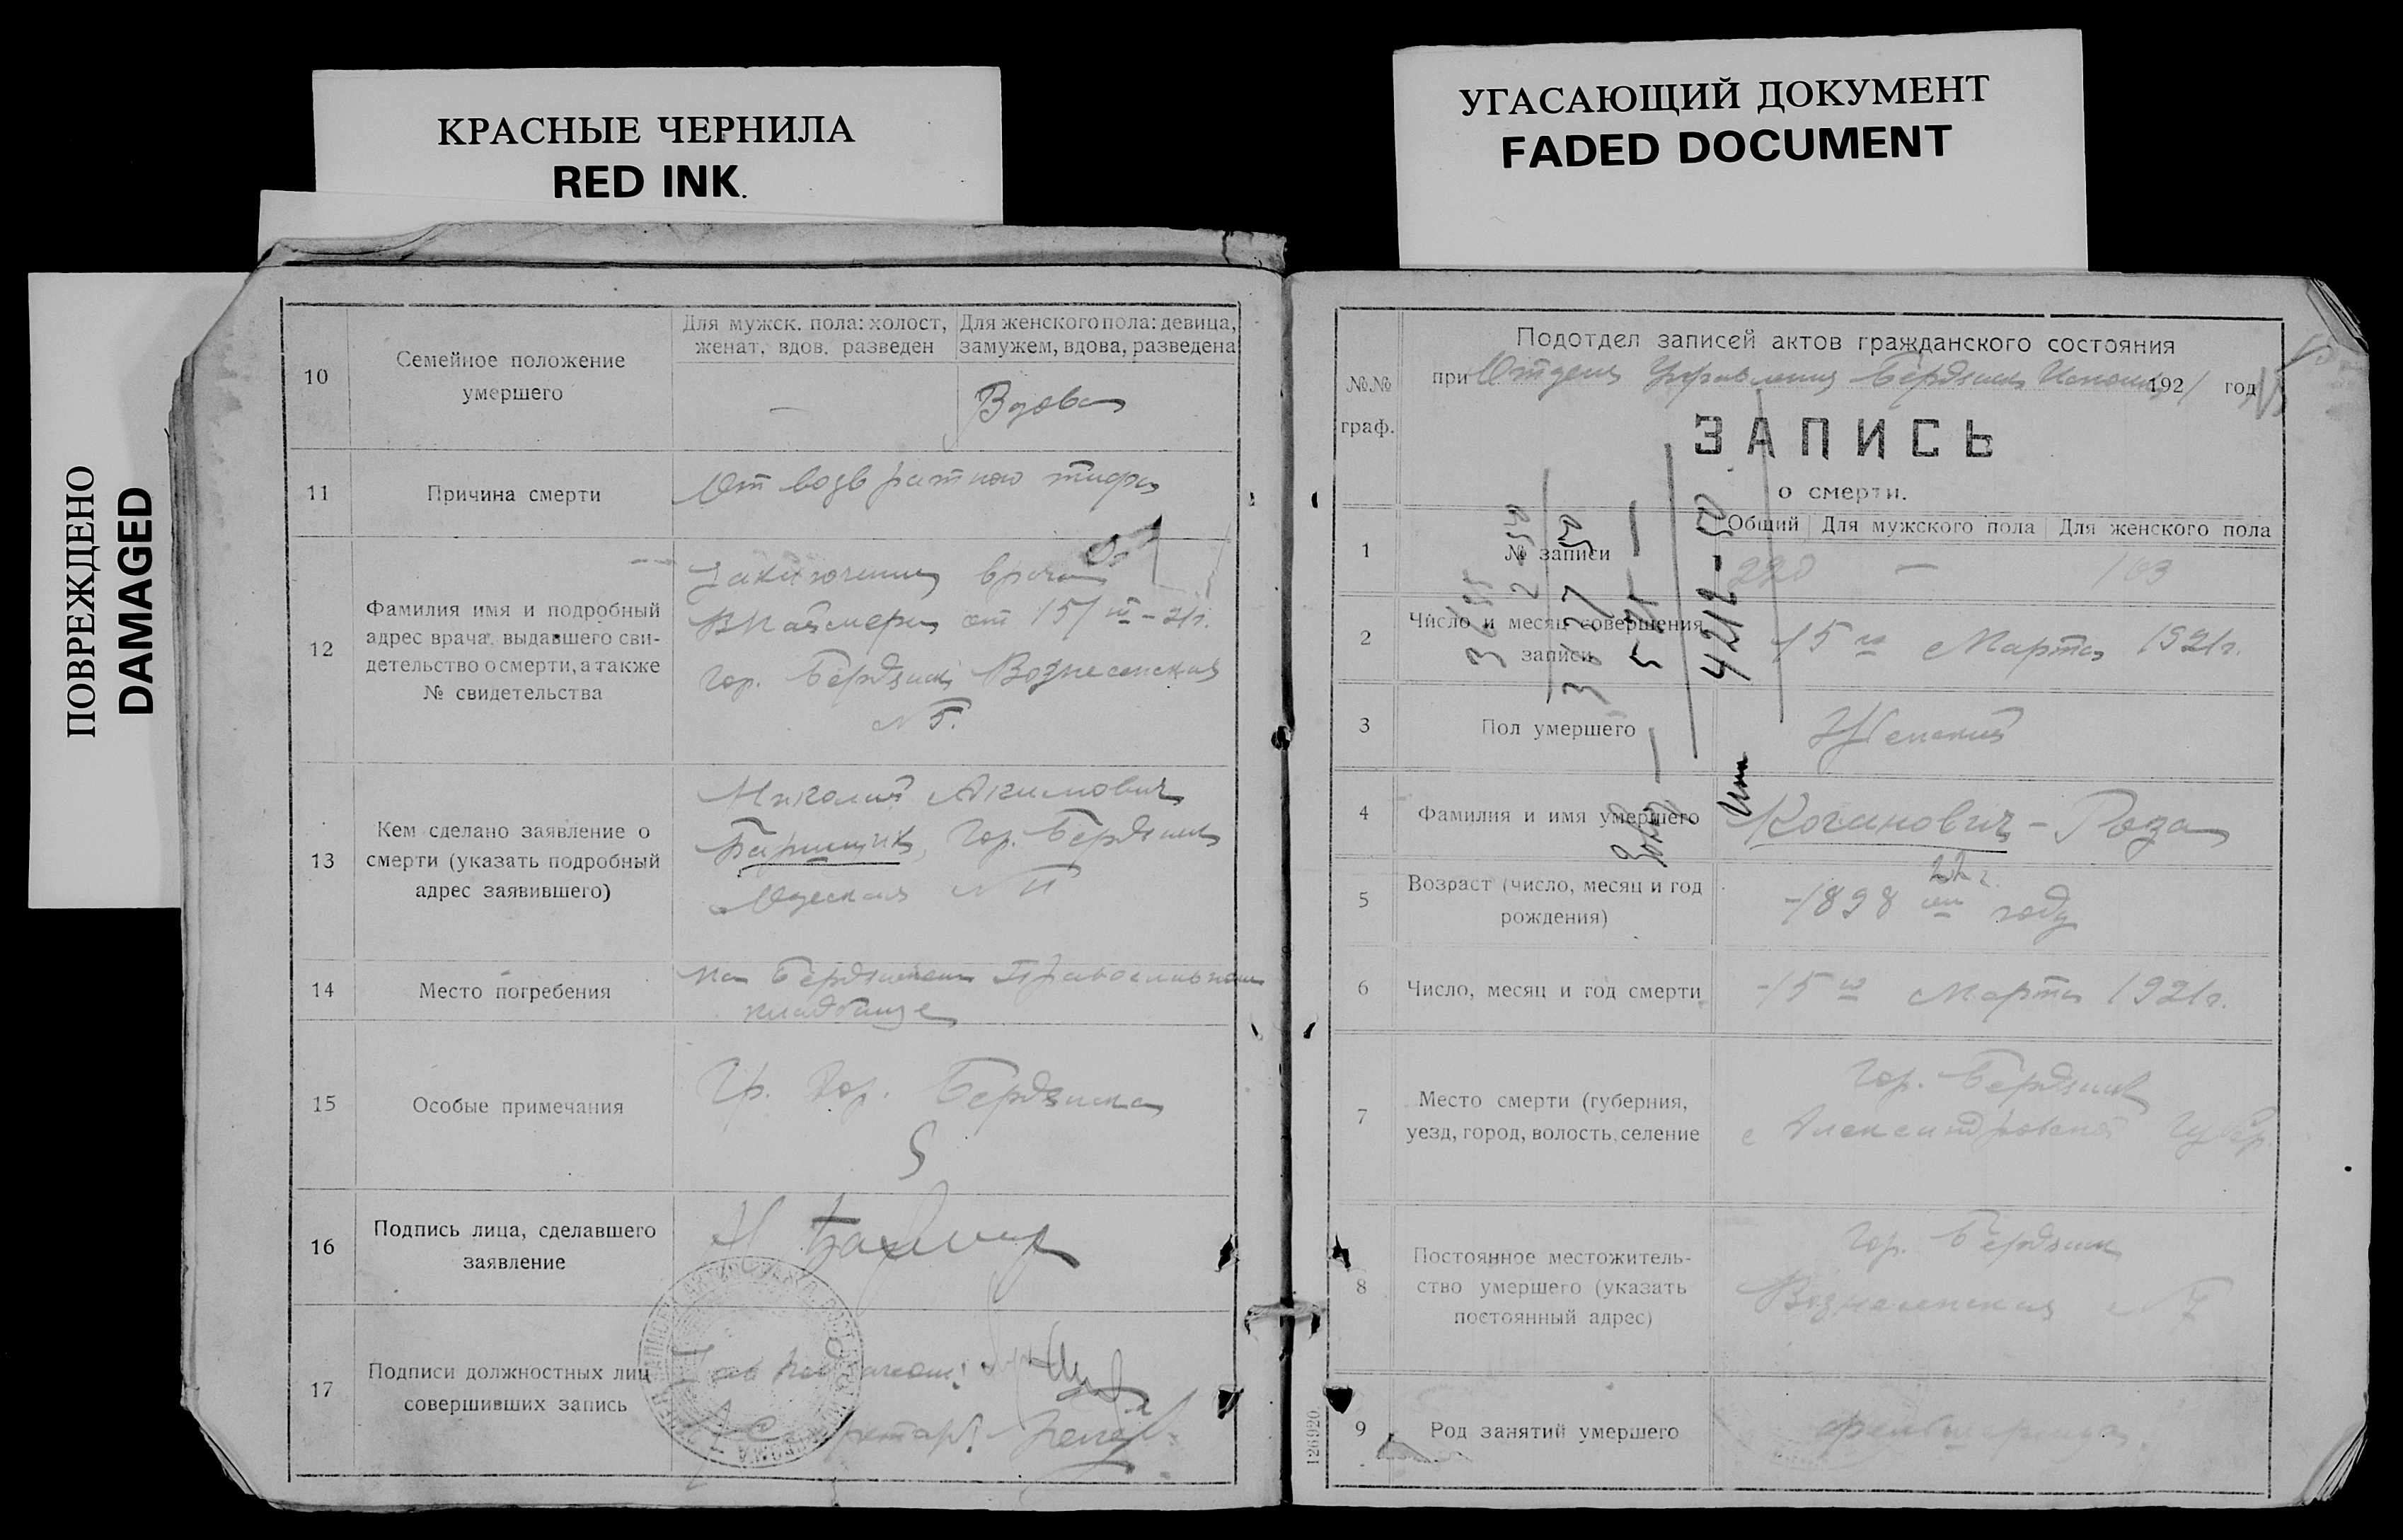 КРАСНЫЕ ЧЕРНИЛА
RED INK.
УГАСАЮЩИЙ ДОКУМЕНТ
FADED DOCUMENT
ПОВРЕЖДЕНО
DAMAGED
10
Семейное положение
умершего
Для мужск. пола: холост,
женат, вдов, разведен
Для женского пола: девица,
замужем, вдова, разведена
—
Вдова
11
Причина смерти
От возвратного тифа
12
Фамилия имя и подробный
адрес врача, выдавшего сви-
детельство о смерти, а также
№ свидетельства
Заключение врача
от 15/III-21г.
гор. Бердянск Вознесенская
№ 5.
13
Кем сделано заявление о
смерти (указать подробный
адрес заявившего)
Николай Акимович
гор. Бердянск
№ 11
14
Место погребения
на Бердянском Православном
кладбище
15
Особые примечания
Гр. гор. Бердянска
16
Подпись лица, сделавшего
заявление
17
Подписи должностных лиц
совершивших запись
Зав
Секретарь
№№
граф.
Подотдел записей актов гражданского состояния
при Отделе Управления Бердянск 1921 год
ЗАПИСЬ
о смерти.
1
№ записи
Общий
Для мужского пола
Для женского пола
220
—
103
2
Число и месяц совершения
записи
15го Марта 1921г.
3
Пол умершего
Женский
4
Фамилия и имя умершего
Коганович - Роза
5
Возраст (число, месяц и год
рождения)
22 г.
-1898 ом году
6
Число, месяц и год смерти
-15го Марта 1921г.
7
Место смерти (губерния,
уезд, город, волость, селение
гор. Бердянск
Александровской Губер.
8
Постоянное местожитель-
ство умершего (указать
постоянный адрес)
гор. Бердянск
Вознесенская №7
9
Род занятий умершего
126920
3177
4212-50